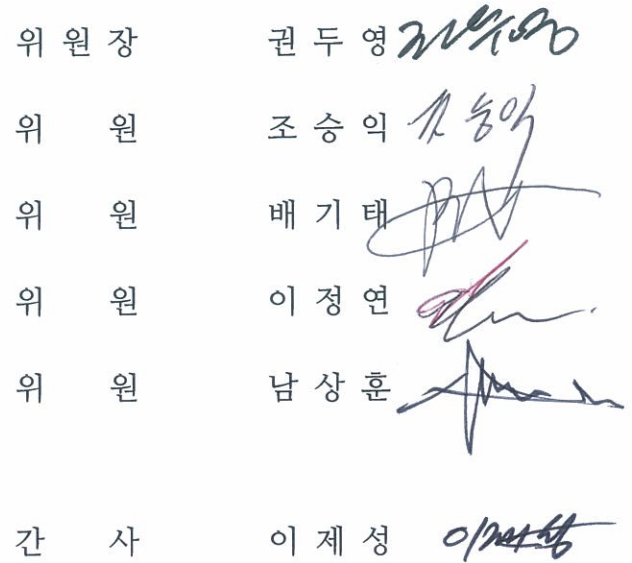 위 원 장 권 두 영
위 원 조 승 익 조승익
위 원 배 기 태
위 원 이 정 연
위 원 남 상 훈
간 사 이 제 성